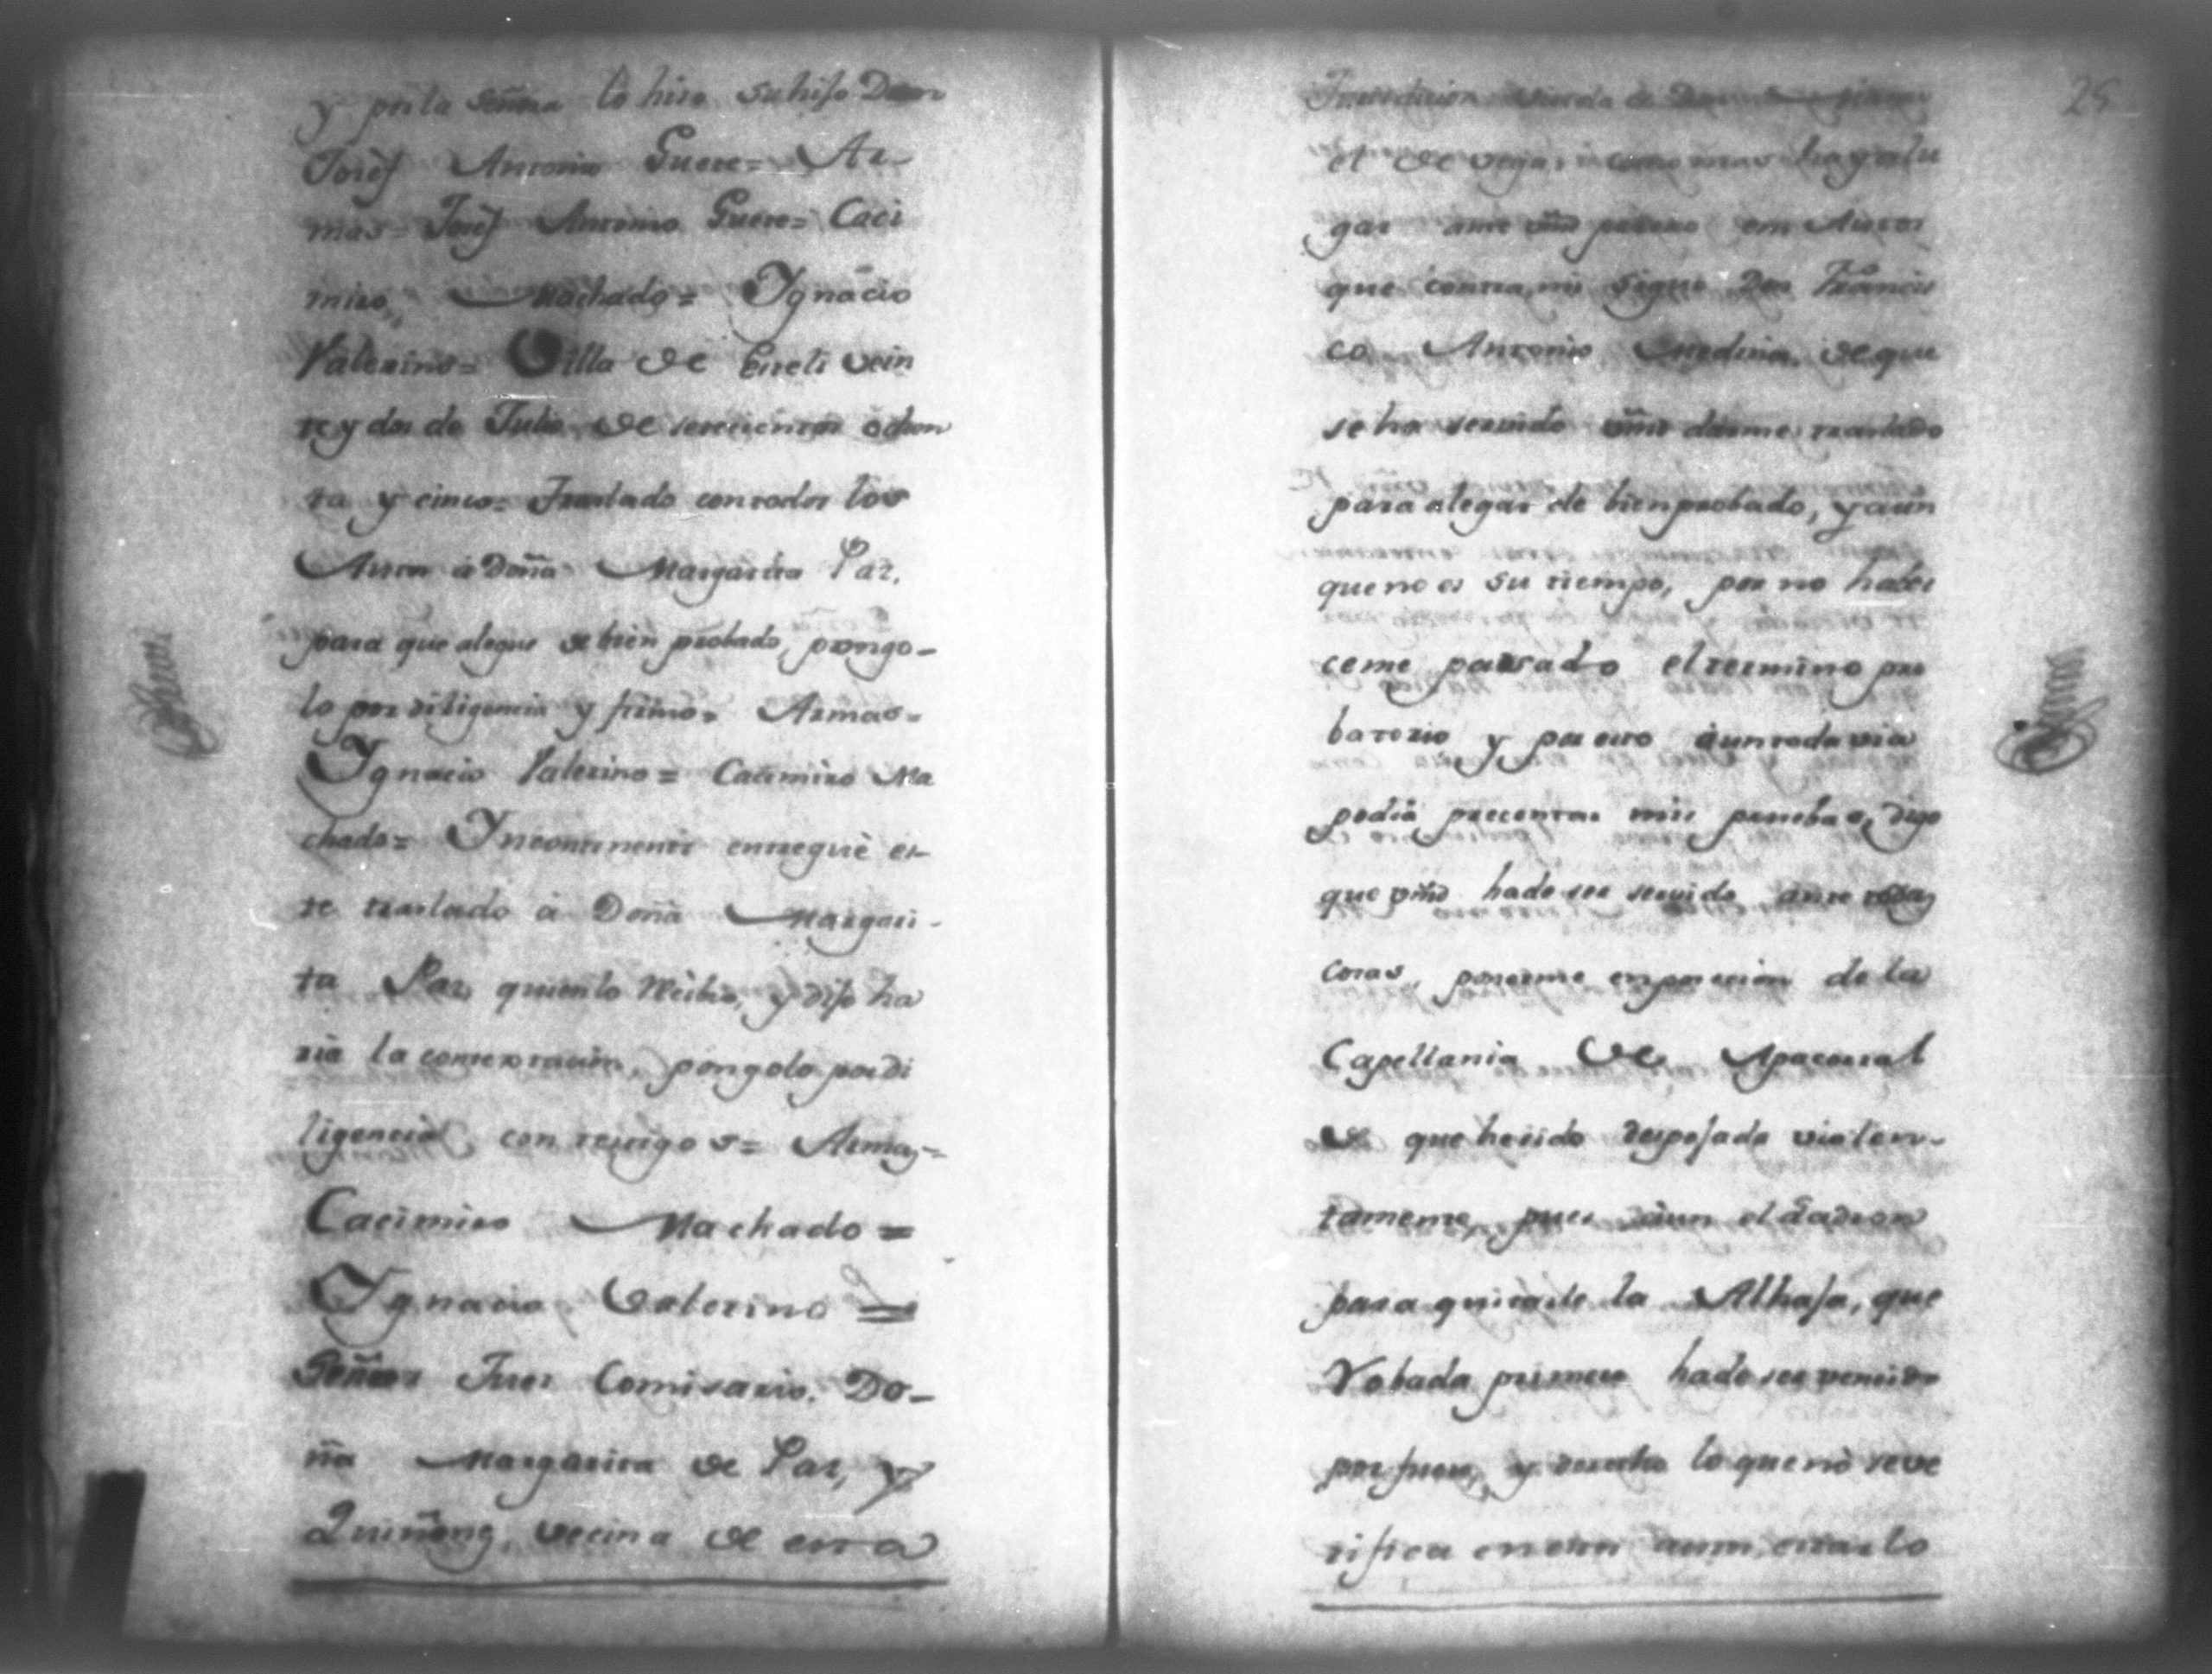 y por la Señora lo hiso su hijo Don
Josef Antonio Guere= Ar
mas= Josef Antonio Guere= Caci
miro Machado= Ygnacio
Valerino= Villa de vein
te y dos de Julio de setecientos ochen
ta y cinco= Traslado con todos los
Autos á Doña Margarita Paz,
para que alegue de bien probado, pongo-
lo por diligencia y firmo= Armas=
Ygnacio Valerino= Casimiro Ma
chado= Yncontinenti entregué es-
te traslado á Doña Margari-
ta Paz, quien lo recibio, y dijo ha
ria la contextacion, pongolo por di
ligencia con testigos= Armas=
Cacimiro Machado=
Ygnacio Valerino=
Señor Juez Comisario. Do-
ña Margarita de Paz, y
Quiñones, vecina de esta
25
Jurediccion viuda de Don
el de Vega, como mas haya lu
gar ante vmd paresco en Autos
que contra mi sigue Don Francis
co Antonio Medina, de que
se ha servido vmd darme traslado
para alegar de bien probado, y aun
que no es su tiempo, por no haber
ceme pasado el termino pro
batorio y por esto aun todavia
podia precentar mis pruebas, digo
que vmd ha de ser servido ante todas
cosas, ponerme en posecion de la
Capellania de
de que he sido despojada violen-
tamente, pues aun el Ladron
para quitarle la Alhaja, que
Robada primero ha de ser vencido
por fuero, y derecho lo que no se ve
rifica en estos